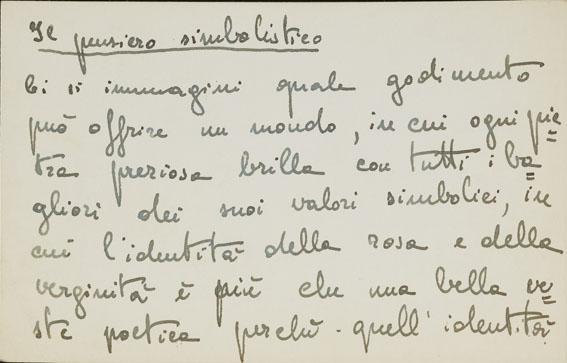 Il pensiero simbolistico
Ci si immagini quale godimento
può offrire un mondo, in cui ogni pie=
tra preziosa brilla con tutti i ba=
gliori dei suoi valori simbolici, in
cui l'identità della rosa e della
verginità è più che una bella ve=
ste poetica perchè quell'identità